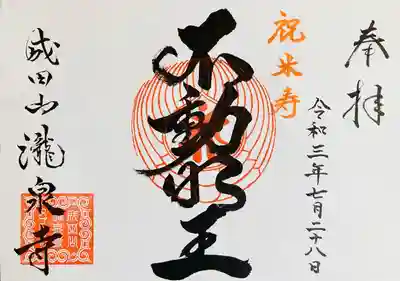 奉拝
令和三年七月二十八日
祝米寿
不動明王
成田山瀧泉寺